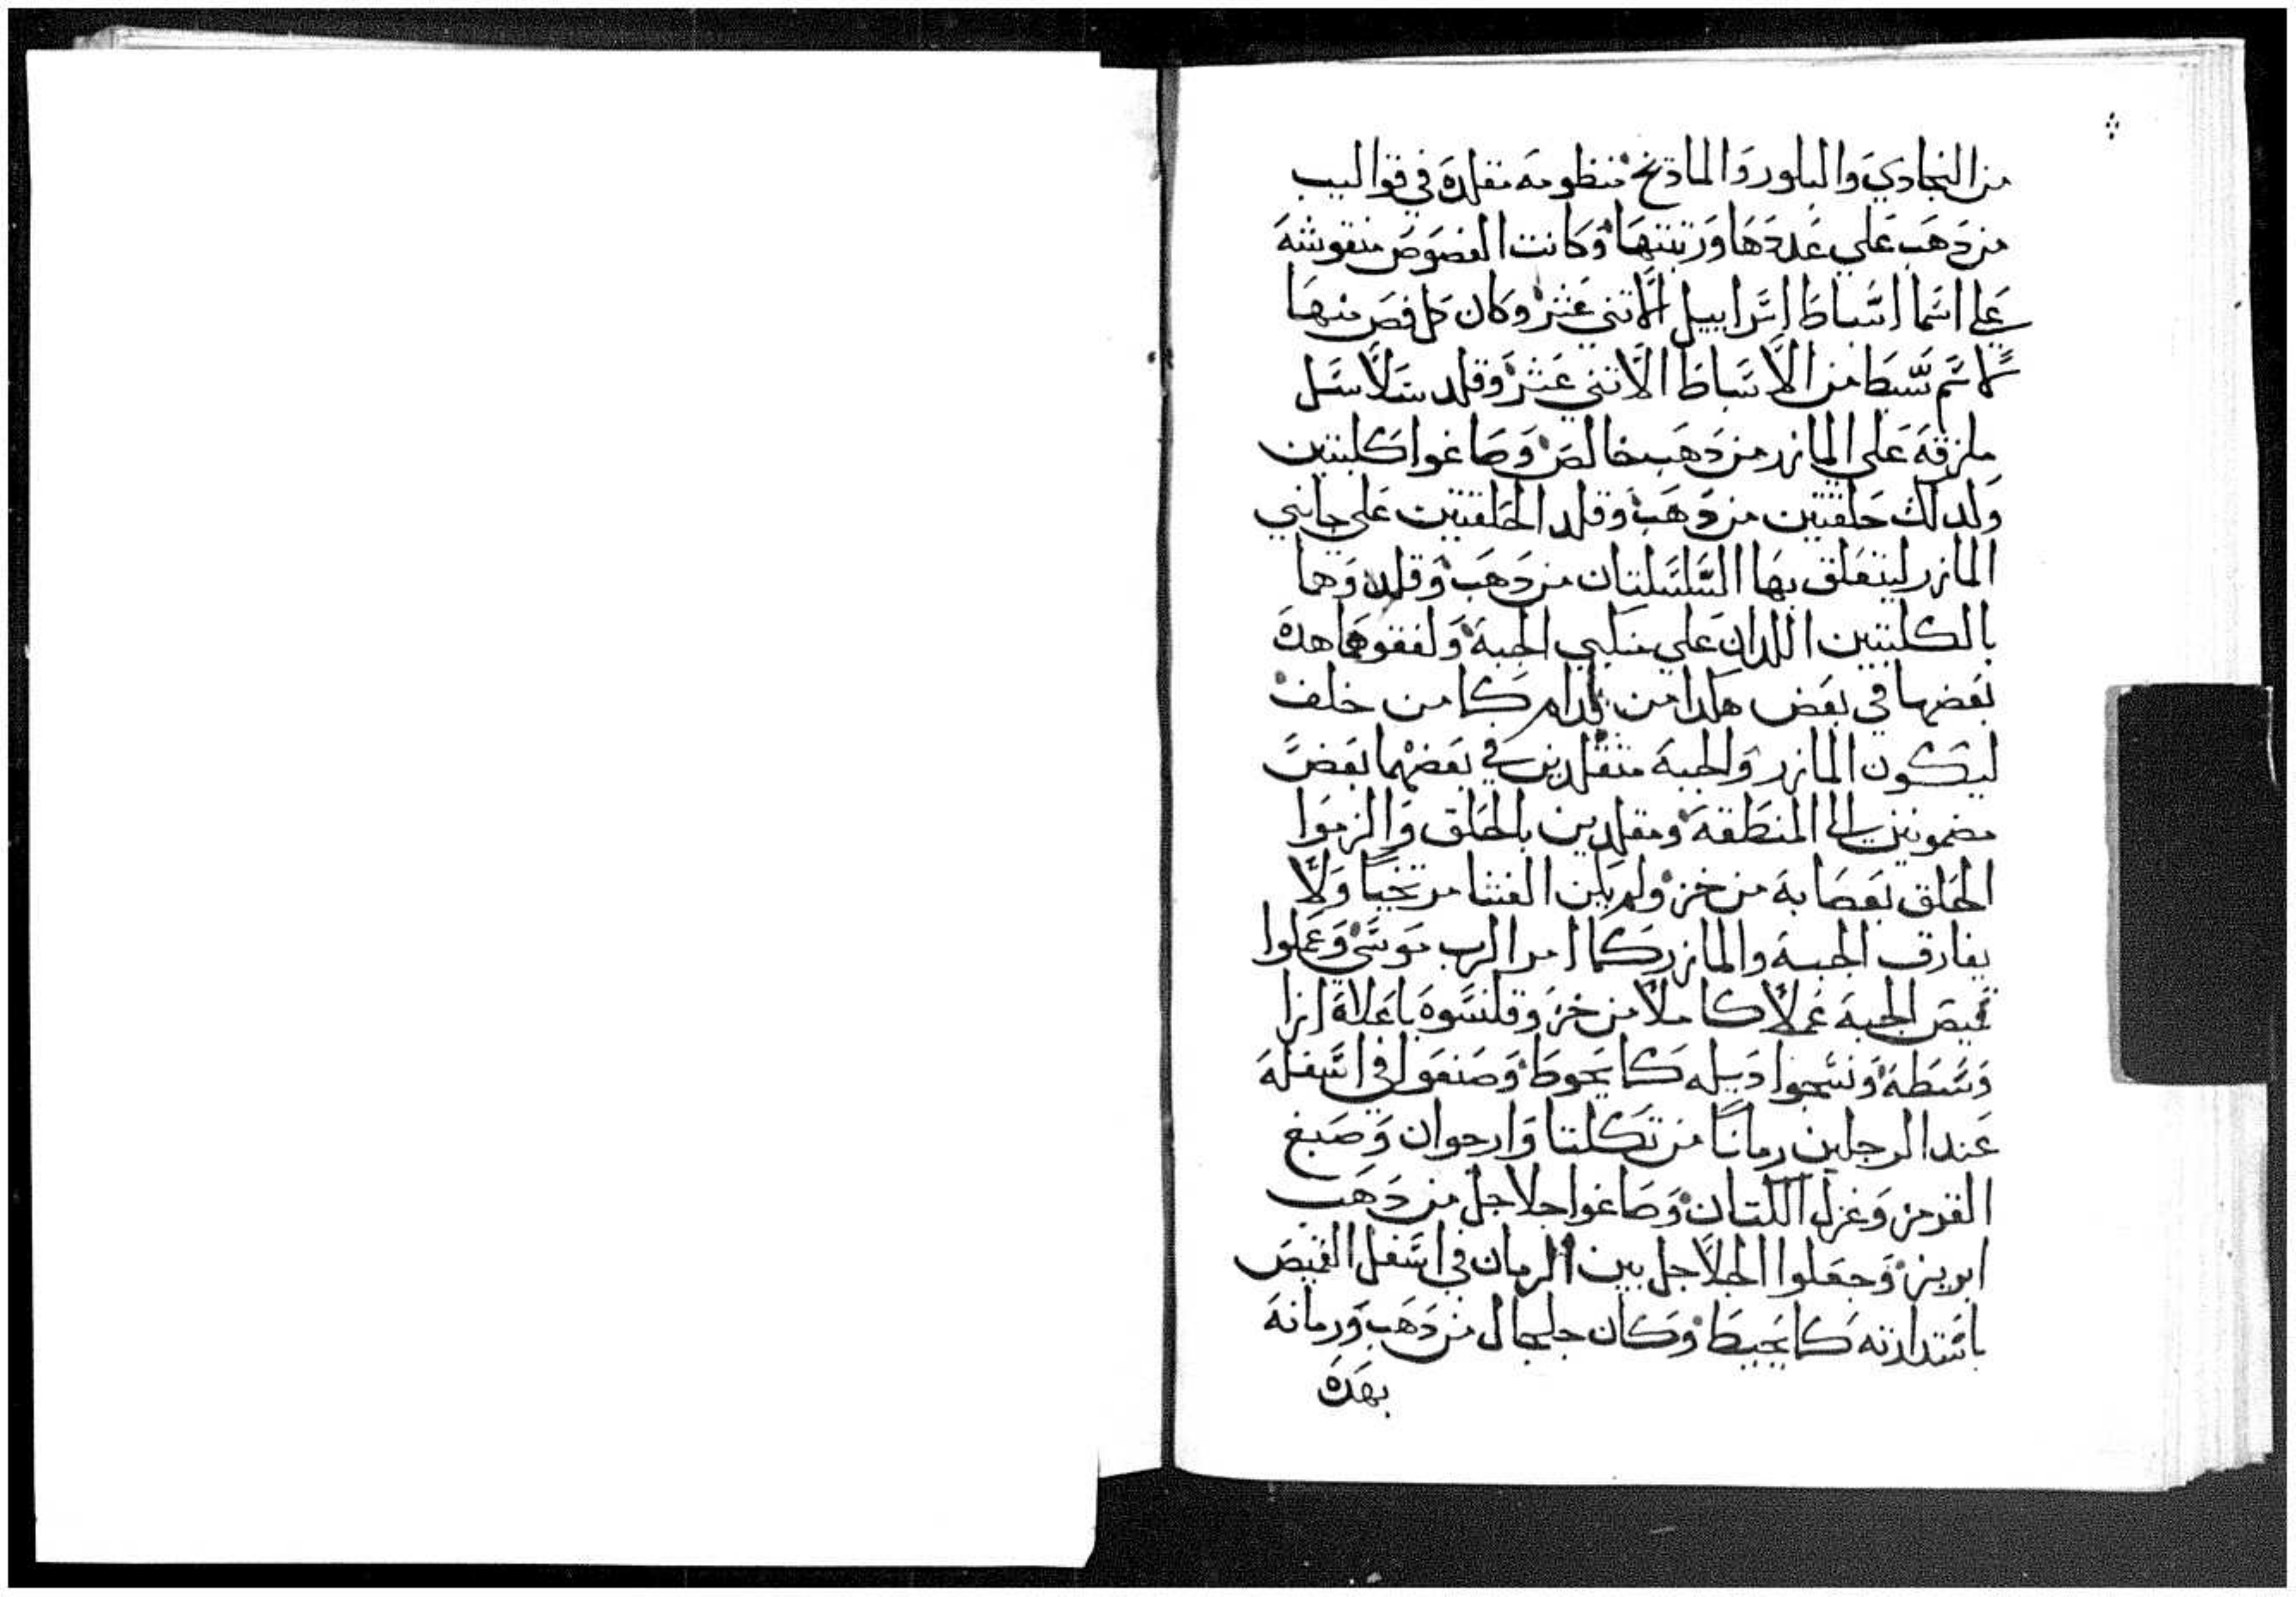 من البجادي والبلور والماذنج منظومه مقلده في قواليب
من دهب علي عددها وزينتها وكانت الفصوص منقوشه
علي اسما اسباط اسراييل الاتني عشر وكان كل فص منها
كاسم سبط من الاسباط الاتني عشر وقلد سلاسل
ملزقه علي المازر من دهب خالص وصاغوا كلبتين
ولدلك حلقتين من دهب وقلد الحلقتين علي جانبي
المازر ليتعلق بها السلسلتان من دهب وقلدوهما
بالكلبتين اللدان علي منكبي الجبه ولفقوهما هده
بعضها في بعض هكدا من قدام كما من خلف
ليكون المازر والجبه متقلدين في بعضهما بعض
مضمونين الي المنطقه ومقلدين بالحلق والزموا
الحلق بعصابه من خز ولم يكن الفتنا مرتخيا ولا
يفارق الجبه والمازر كما امر الرب موسي وعملوا
قميص الجبه عملا كاملا من خز وقلنسوه باعلاه ازا
وسطه ونسجوا ديله كما يحوط وصنعوا في اسفله
عند الرجلين رمانا من تكلتا وارجوان وصبغ
القرمز وغزل الكتان وصاغوا جلاجل من دهب
ابريز وجعلوا الجلاجل بين الرمان في اسفل القميص
باستدارته كما يحيط وكان جلجال من دهب ورمانه
بهده